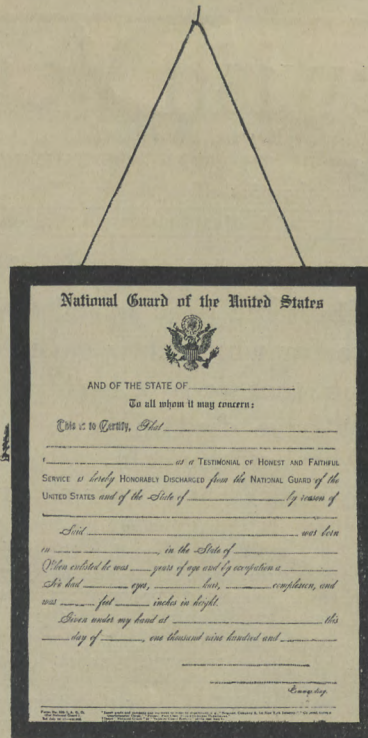 National Guard of the United States
AND OF THE STATE OF
To all whom it may concern:
This is to Certify, That
as a TESTIMONIAL OF HONEST AND FAITHFUL
SERVICE is hereby HONORABLY DISCHARGED from the NATIONAL GUARD of the
UNITED STATES and of the State of by reason of
Said was born
in , in the State of
When enlisted he was years of age and by occupation a
He had eyes, hair, complexion, and
was feet inches in height.
Given under my hand at this
day of , one thousand nine hundred and
Commanding.